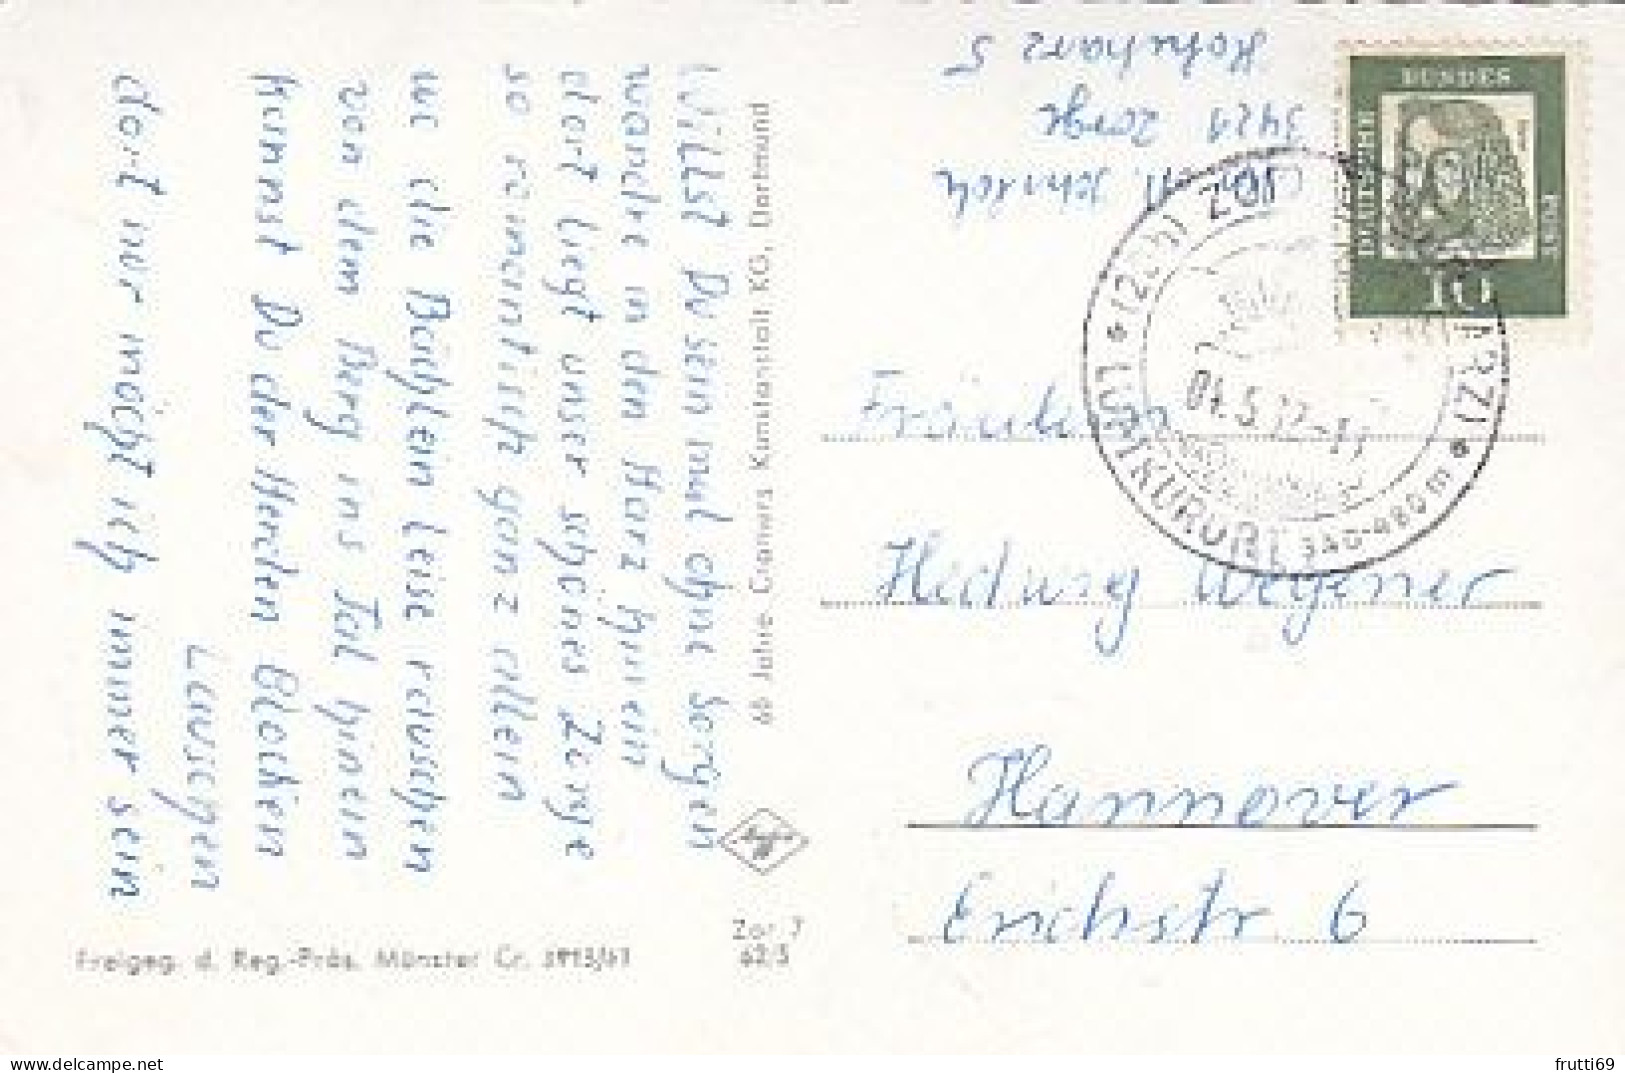 Willst Du sein mal ohne Sorgen
wandre in den Harz hinein
dort liegt unser schönes Zorge
so romantisch ganz allein
wo die Bächlein leise rauschen
von dem Berg ins Tal hinein
kannst Du der Herden Glocken
Lauschen
dort nur möcht ich immer sein
60 Jahre Cramers Kunstanstalt KG, Dortmund
Agfa
Zor 7
62/5
Freigeg. d. Reg.-Präs. Münster Cr. 3913/61
3421 Zorge
Hohharz 5
DEUTSCHE
BUNDES
POST
10
LUFTKURORT 340-480 m
Fräulein
Hedwig Wegener
Hannover
Erichstr 6
frutti69